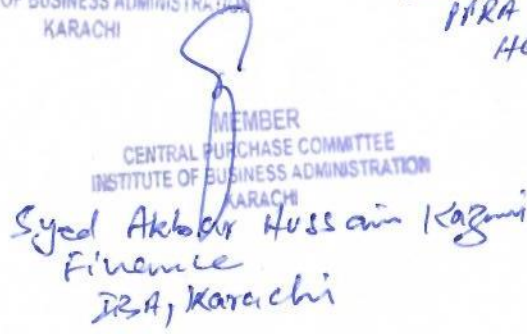 OF BUSINESS ADMINISTRATION
KARACHI
PPRA
MEMBER
CENTRAL PURCHASE COMMITTEE
INSTITUTE OF BUSINESS ADMINISTRATION
KARACHI
Syed Akbar Hussain Kazmi
Finance
IBA, Karachi